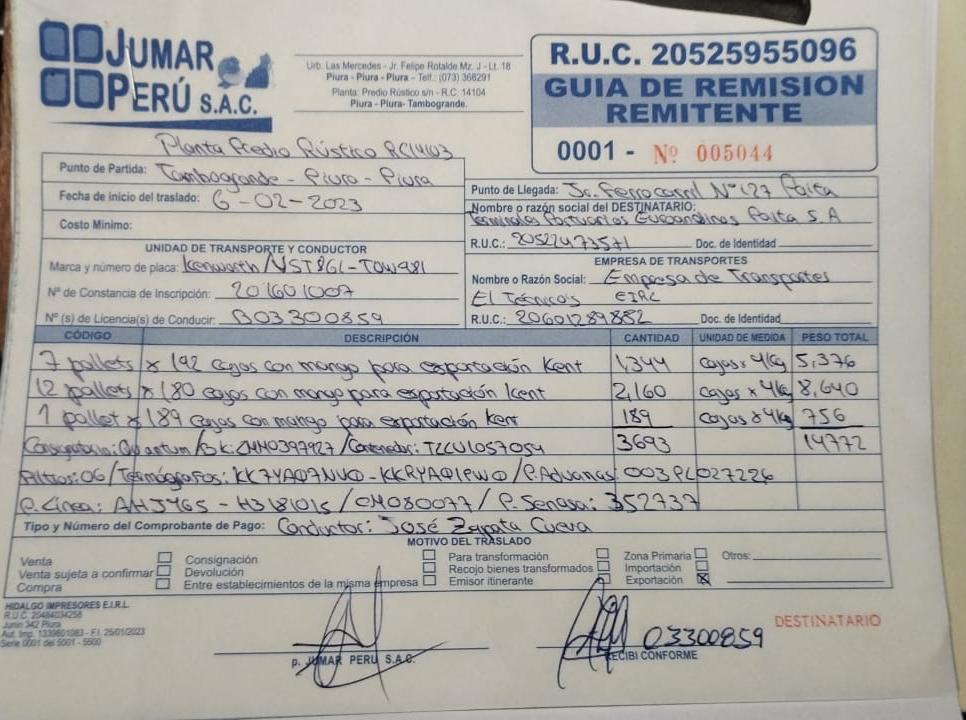 JUMAR
PERÚ S.A.C.
Urb. Las Mercedes - Jr. Felipe Rotalde Mz. J - Lt. 18
Piura - Piura - Piura - Telf.: (073) 368291
Planta: Predio Rústico s/n - R.C. 14104
Piura - Piura- Tambogrande.
R.U.C. 20525955096
GUIA DE REMISION
REMITENTE
0001 - Nº 005044
Planta Predio Rústico RC14103
Punto de Partida: Tambogrande - Piura - Piura
Fecha de inicio del traslado: 6-02-2023
Costo Minimo:
Punto de Llegada: Jr. Ferrocarril Nº 127 Paita
Nombre o razón social del DESTINATARIO:
Terminales Portuarios Euroandinos Paita S.A
R.U.C.: 20522473571 Doc. de Identidad
UNIDAD DE TRANSPORTE Y CONDUCTOR
Marca y número de placa: Kenworth / VST861-TOW981
Nº de Constancia de Inscripción: 201601007
Nº (s) de Licencia(s) de Conducir: B03300859
EMPRESA DE TRANSPORTES
Nombre o Razón Social: Empresa de Transportes
El Técnico's EIRL
R.U.C: 20601289882 Doc. de Identidad
CÓDIGO DESCRIPCIÓN CANTIDAD UNIDAD DE MEDIDA PESO TOTAL
7 pallets x 192 cajas con mango para exportación Kent 1,344 cajas x 4kg 5,376
12 pallets x 180 cajas con mango para exportación Kent 2,160 cajas x 4kg 8,640
1 pallet x 189 cajas con mango para exportación Kent 189 cajas x 4kg 756
Consignatario: Quantum / Bk: / Contenedor: TLLU1057054 3693 14772
Filtros: 06 / Termógrafos: KK7YAQ7NVO - KKRYAQ1PWO / P. Aduanas: 003PL027226
P. Línea: AHJ465 - H3181015 / CM080077 / P. Senasa: 352737
Tipo y Número del Comprobante de Pago: Conductor: José Zapata Cueva
MOTIVO DEL TRASLADO
Venta Consignación Para transformación Zona Primaria Otros:
Venta sujeta a confirmar Devolución Recojo bienes transformados Importación
Compra Entre establecimientos de la misma empresa Emisor itinerante Exportación X
HIDALGO IMPRESORES E.I.R.L.
R.U.C. 20484034258
Junin 342 Piura
Aut. Imp. 1339801083 - F.I. 25/01/2023
Serie 0001 del 5001 - 5500
p. JUMAR PERÚ S.A.C.
03300859
RECIBI CONFORME
DESTINATARIO